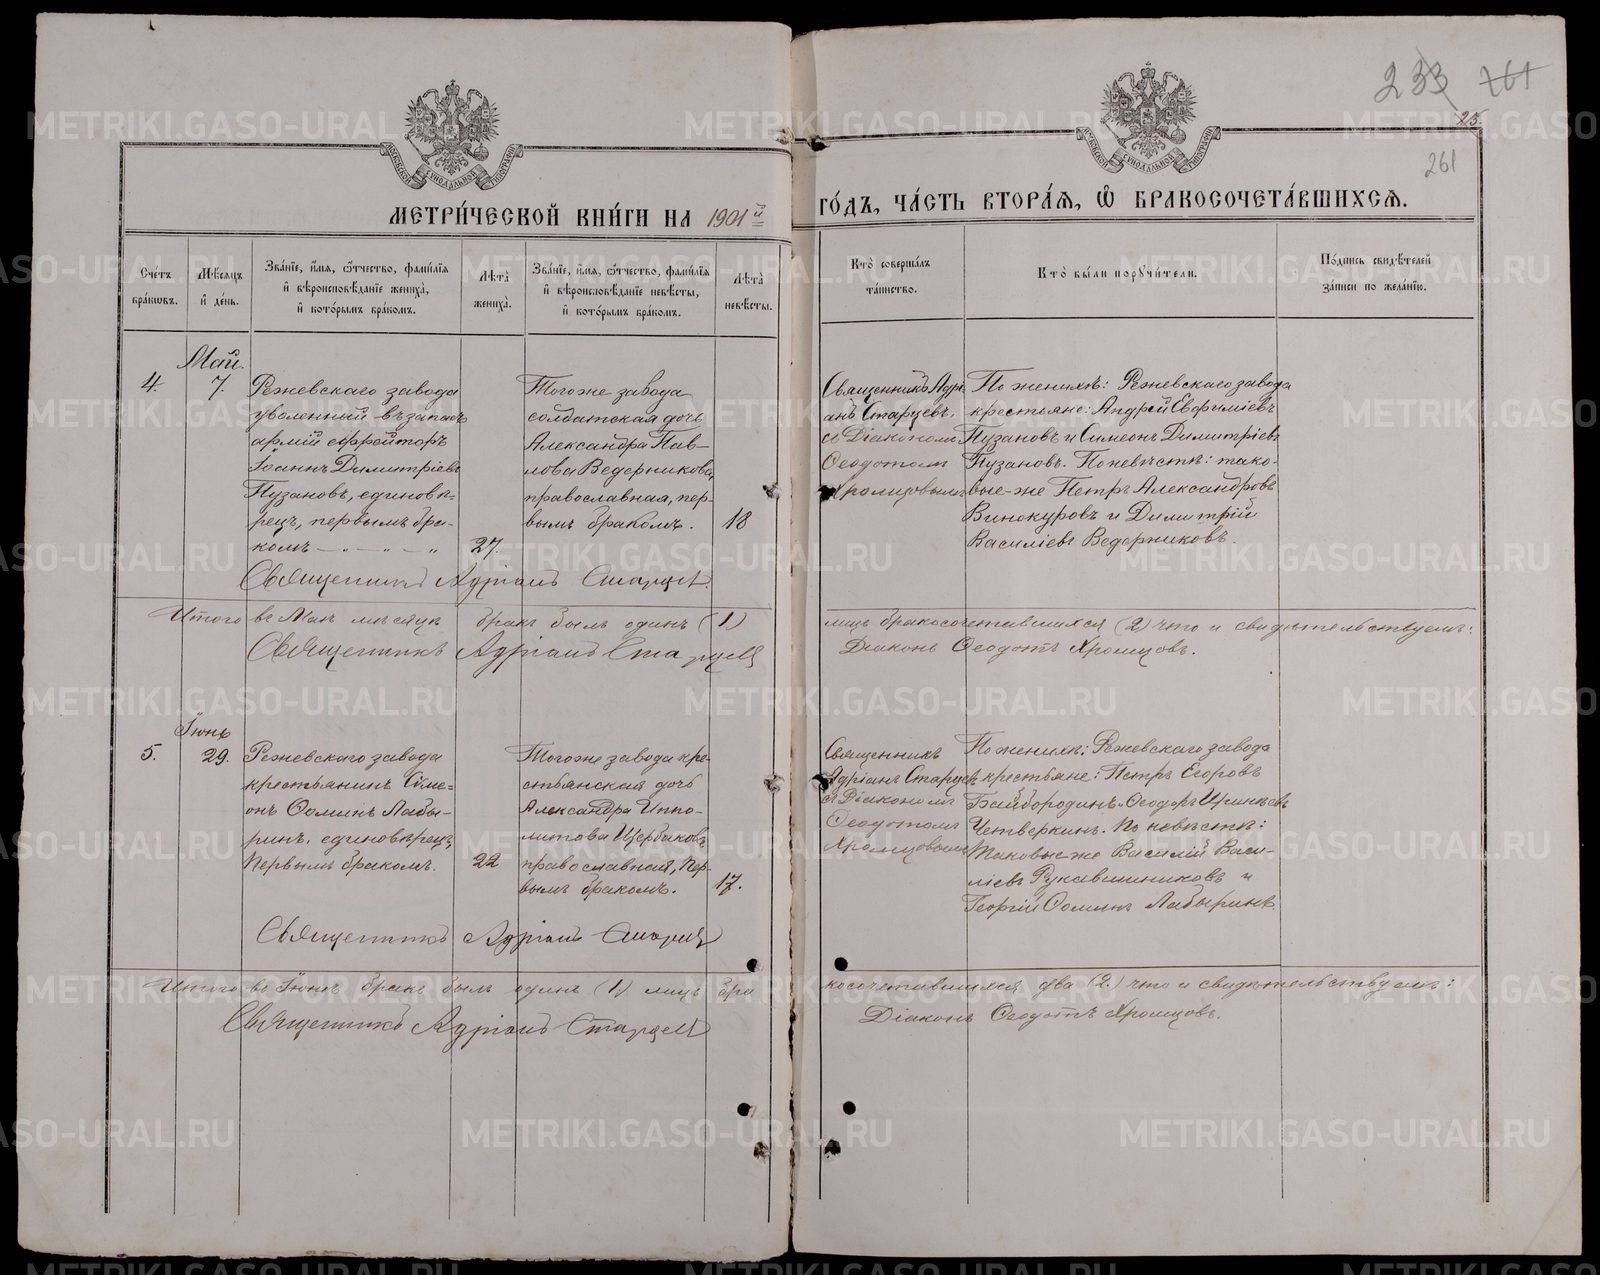 233 261
25.
261
МОСКОВСКОЙ СѴНОДАЛЬНОЙ ТИПОГРАФІИ
МОСКОВСКОЙ СѴНОДАЛЬНОЙ ТИПОГРАФІИ
МЕТРИ́ЧЕСКОЙ КНИ́ГИ НА 1901й
ГО́ДЪ, ЧА́СТЬ ВТОРА́Я, Ѽ БРАКОСОЧЕТА́ВШИХСЯ.
Сче́тъ бра́кѡвъ.
Мѣ́сяцъ и҆ де́нь.
Зва́нїе, и҆́мя, ѻ҆́тчество, фами́лїя
и҆ вѣроисповѣ́данїе жениха̀,
и҆ кото́рымъ бра́комъ.
Лѣта̀ жениха̀.
Зва́нїе, и҆́мя, ѻ҆́тчество, фами́лїя
и҆ вѣроисповѣ́данїе невѣ́сты,
и҆ кото́рымъ бра́комъ.
Лѣта̀ невѣ́сты.
Кто̀ соверша́лъ та́инство.
Кто̀ бы́ли порꙋчи́тели.
По́дпись свидѣ́телей за́писи по жела́нїю.
4.
Май.
7.
Режевскаго завода
уволенный въ запасъ
арміи ефрейторъ
Іоаннъ Димитріевъ
Пузановъ, единовѣ-
рецъ, первымъ бра-
комъ
27.
Тогоже завода
солдатская дочь
Александра Пав-
лова Ведерникова,
православная, пер-
вымъ бракомъ.
18
Священникъ Адрі-
анъ Старцевъ,
съ Діакономъ
Ѳеодотомъ
Хромцовымъ
По женихѣ: Режевскаго завода
крестьяне: Андрей Евфиміевъ
Пузановъ и Симеонъ Димитріевъ
Пузановъ. По невѣстѣ: тако-
вые-же Петръ Александровъ
Винокуровъ и Димитрій
Василіевъ Ведерниковъ.
Священникъ Адріанъ Старцевъ.
Итого въ Маѣ мѣсяцѣ бракъ былъ одинъ (1)
лицъ бракосочетавшихся (2) что и свидѣтельствуемъ:
Священникъ Адріанъ Старцевъ
Діаконъ Ѳеодотъ Хромцовъ.
5.
Іюнь
29.
Режевскаго завода
крестьянинъ Симе-
онъ Ѳоминъ Лабы-
ринъ, единовѣрецъ,
первымъ бракомъ.
22
Тогоже завода кре-
стьянская дочь
Александра Иппо-
литова Щербакова,
православная, пер-
вымъ бракомъ.
17.
Священникъ
Адріанъ Старцевъ
съ Діакономъ
Ѳеодотомъ
Хромцовымъ
По женихѣ: Режевскаго завода
крестьяне: Петръ Егоровъ
Байбородинъ Ѳеодоръ
Четверкинъ. По невѣстѣ:
таковые же Василій Васи-
ліевъ Рукавишниковъ и
Георгій Ѳоминъ Лабыринъ.
Священникъ Адріанъ Старцевъ
Итого въ Іюнѣ бракъ былъ одинъ (1) лицъ бра
косочетавшихся два (2) что и свидѣтельствуемъ:
Священникъ Адріанъ Старцевъ
Діаконъ Ѳеодотъ Хромцовъ.
METRIKI.GASO-URAL.RU